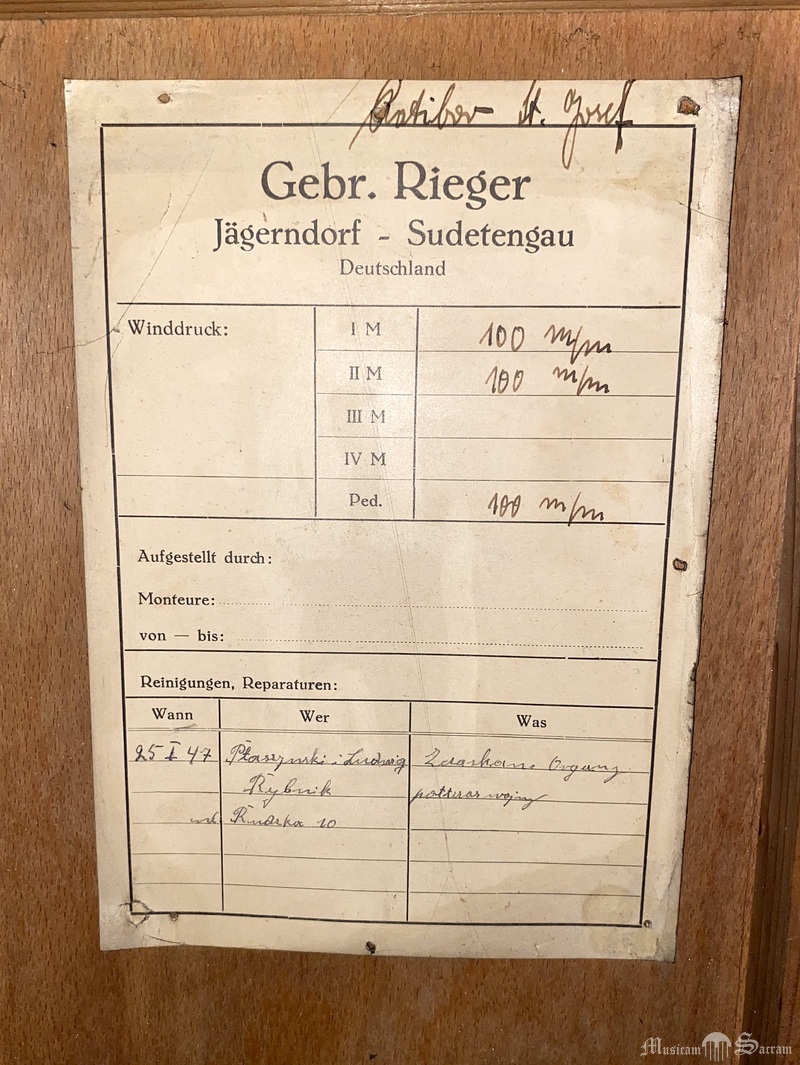 Ratibor St. Josef
Gebr. Rieger
Jägerndorf - Sudetengau
Deutschland
Winddruck:
I M 100 m/m
II M 100 m/m
III M
IV M
Ped. 100 m/m
Aufgestellt durch:
Monteure:
von — bis:
Reinigungen, Reparaturen:
Wann Wer Was
25 I 47 Ptaszynski i Ludwig Organy
Rybnik wojny
Rudzka 10
Musicam Sacram